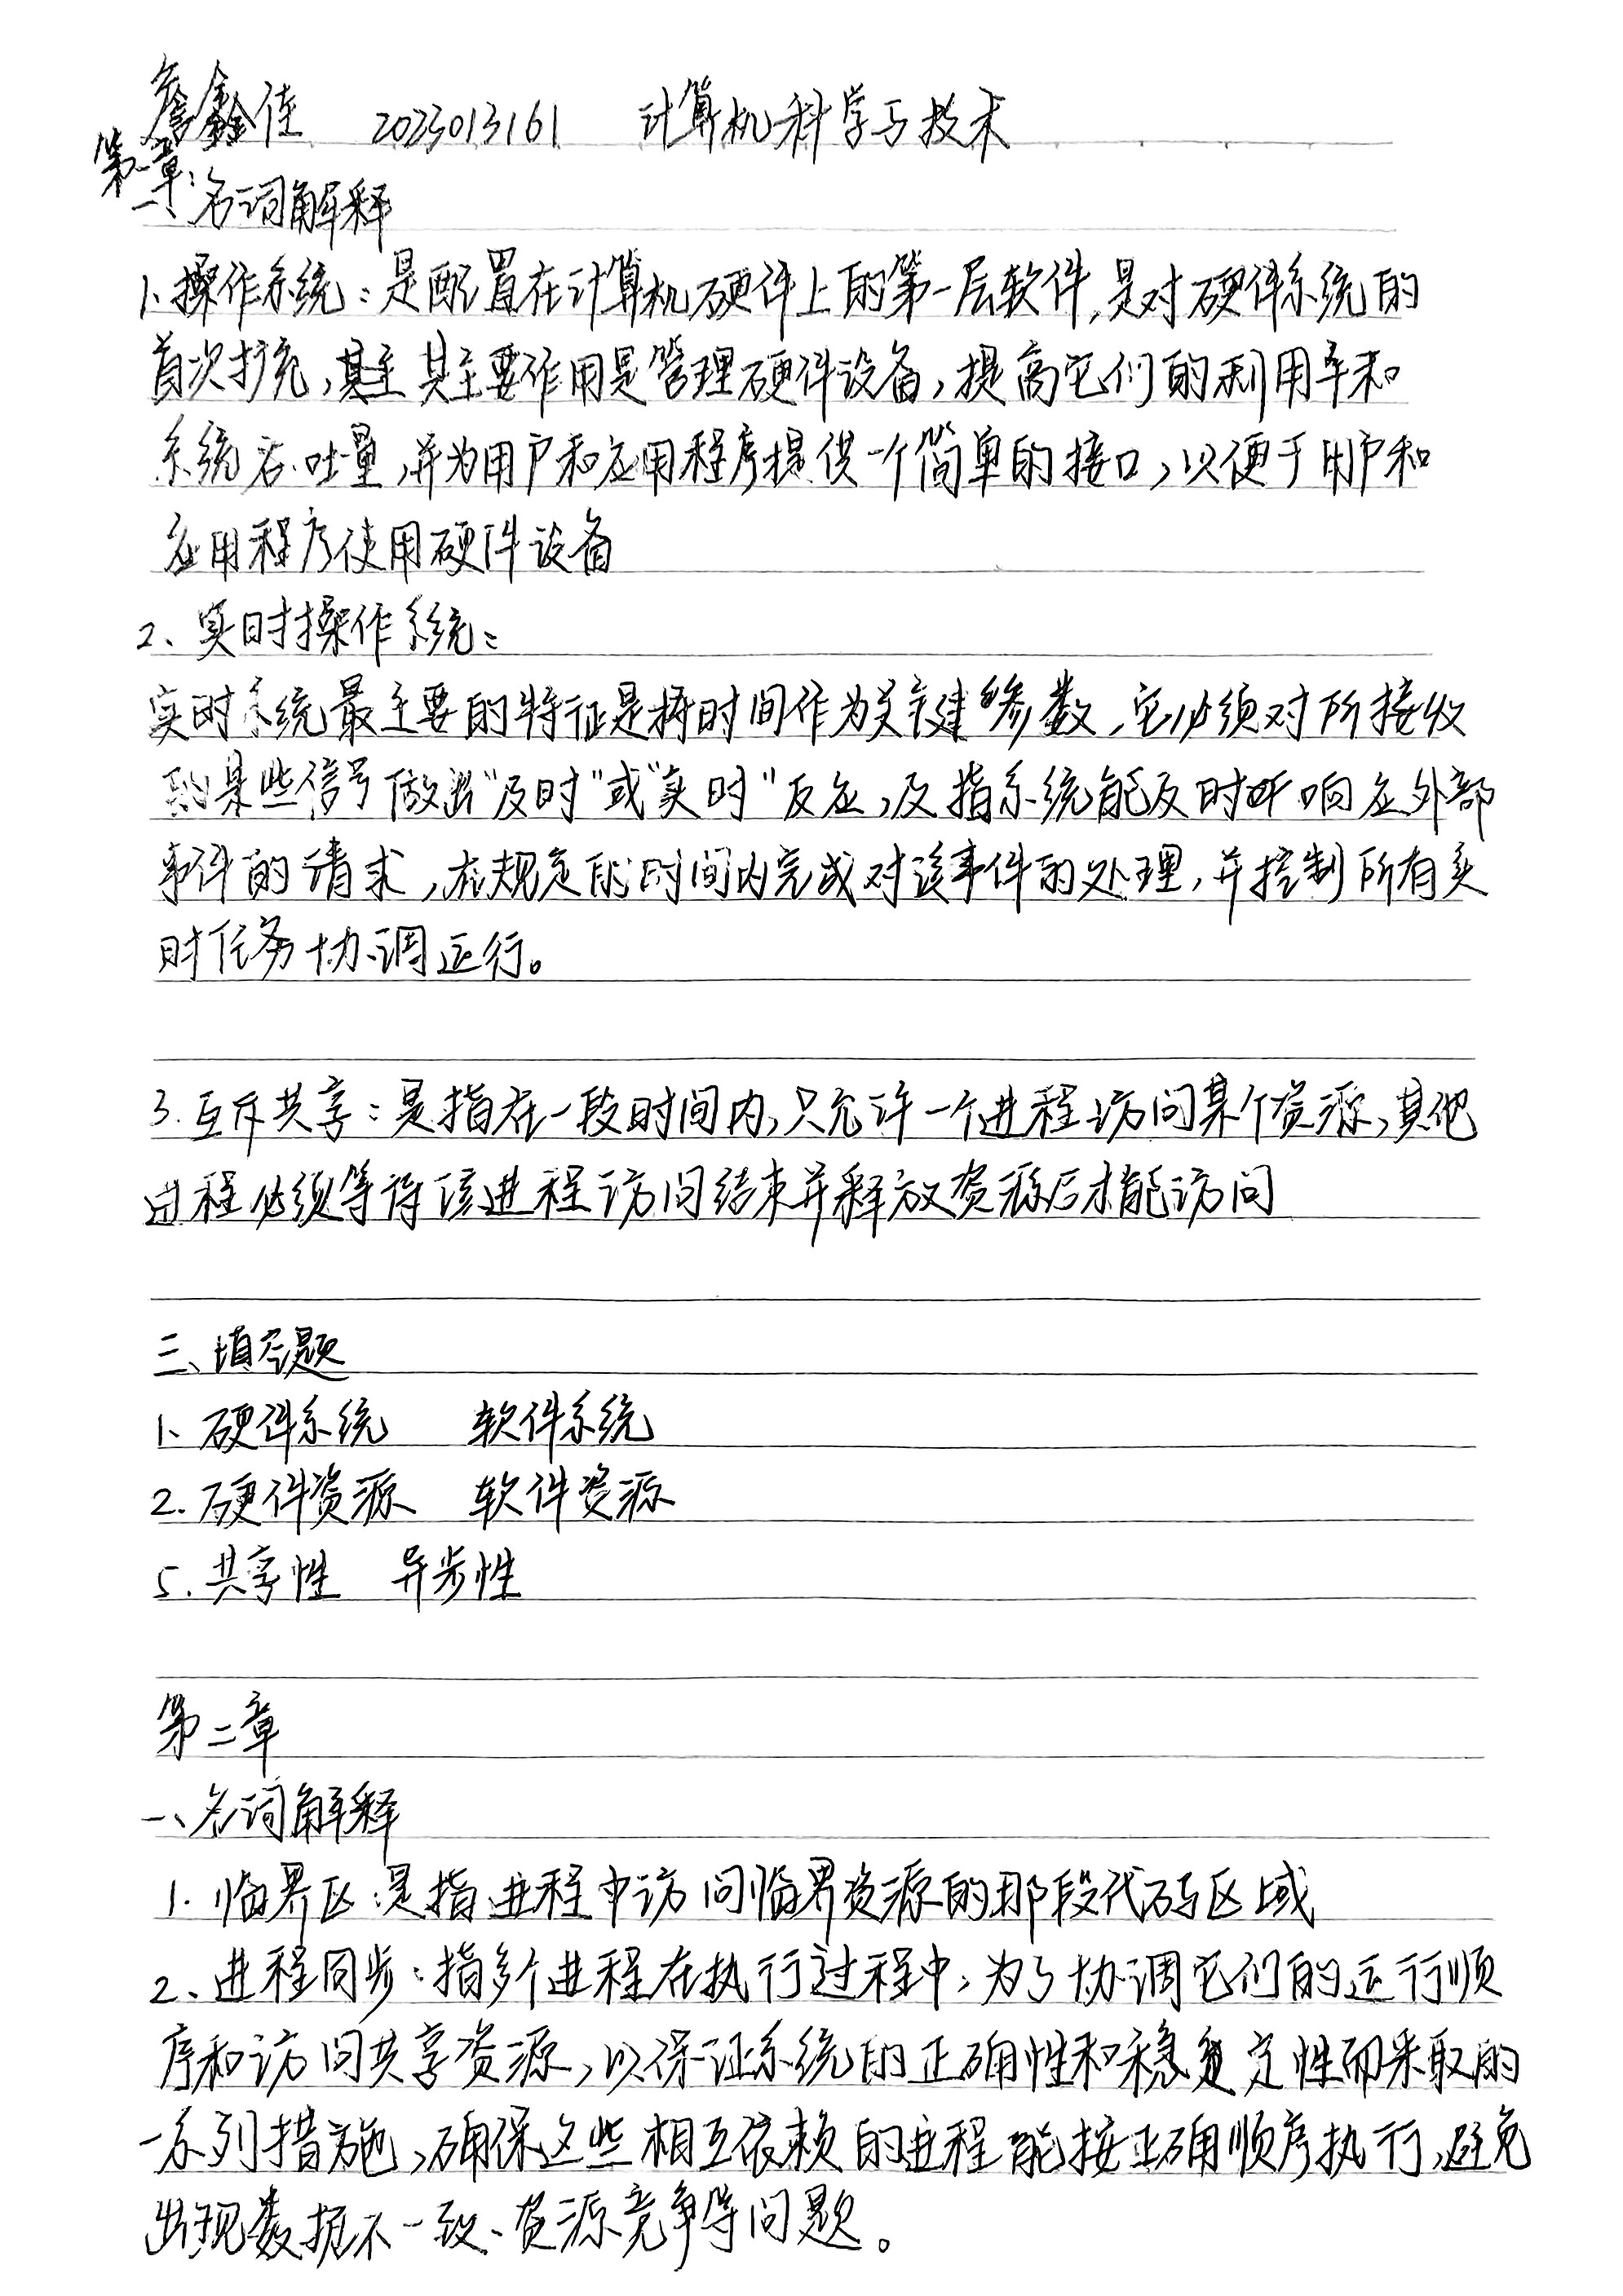 詹鑫佳 2023013161 计算机科学与技术
第一章:
一、名词解释
1、操作系统:是配置在计算机硬件上的第一层软件,是对硬件系统的
首次扩充,其主要作用是管理硬件设备,提高它们的利用率和
系统吞吐量,并为用户和应用程序提供一个简单的接口,以便于用户和
应用程序使用硬件设备
2、实时操作系统:
实时系统最主要的特征是将时间作为关键参数,它必须对所接收
到的某些信号做出"及时"或"实时"反应,及指系统能及时响应外部
事件的请求,在规定的时间内完成对该事件的处理,并控制所有实
时任务协调运行。
3.互斥共享:是指在一段时间内,只允许一个进程访问某个资源,其他
进程必须等待该进程访问结束并释放资源后才能访问
三、填空题
1、硬件系统 软件系统
2.硬件资源 软件资源
5.共享性 异步性
第二章
一、名词解释
1.临界区:是指进程中访问临界资源的那段代码区域
2、进程同步:指多个进程在执行过程中,为了协调它们的运行顺
序和访问共享资源,以保证系统的正确性和稳定性而采取的
一系列措施,确保这些相互依赖的进程能按正确顺序执行,避免
出现数据不一致、资源竞争等问题。